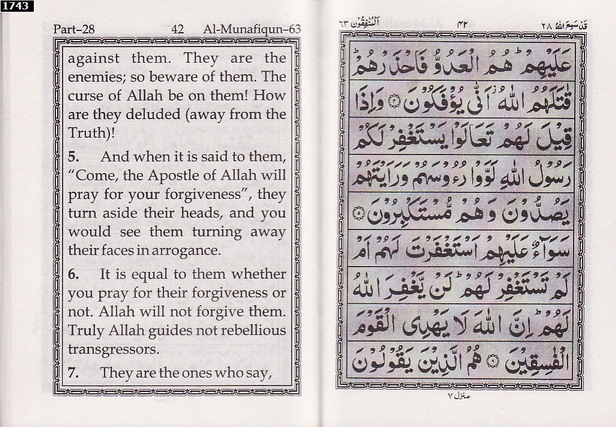 1743
Part–28 42 Al-Munafiqun–63
against them. They are the
enemies; so beware of them. The
curse of Allah be on them! How
are they deluded (away from the
Truth)!
5. And when it is said to them,
“Come, the Apostle of Allah will
pray for your forgiveness”, they
turn aside their heads, and you
would see them turning away
their faces in arrogance.
6. It is equal to them whether
you pray for their forgiveness or
not. Allah will not forgive them.
Truly Allah guides not rebellious
transgressors.
7. They are the ones who say,
قد سمع الله ٢٨ ٤٢ المنفقون ٦٣
عَلَيْهِمْ ؕ هُمُ الْعَدُوُّ فَاحْذَرْهُمْ ؕ
قٰتَلَهُمُ اللّٰهُ ؗ اَنّٰى يُؤْفَكُوْنَ ۝٤ وَاِذَا
قِيْلَ لَهُمْ تَعَالَوْا يَسْتَغْفِرْ لَكُمْ
رَسُوْلُ اللّٰهِ لَوَّوْا رُءُوْسَهُمْ وَرَاَيْتَهُمْ
يَصُدُّوْنَ وَهُمْ مُّسْتَكْبِرُوْنَ ۝٥
سَوَآءٌ عَلَيْهِمْ اَسْتَغْفَرْتَ لَهُمْ اَمْ
لَمْ تَسْتَغْفِرْ لَهُمْ ؕ لَنْ يَّغْفِرَ اللّٰهُ
لَهُمْ ؕ اِنَّ اللّٰهَ لَا يَهْدِى الْقَوْمَ
الْفٰسِقِيْنَ ۝٦ هُمُ الَّذِيْنَ يَقُوْلُوْنَ
منزل ٧